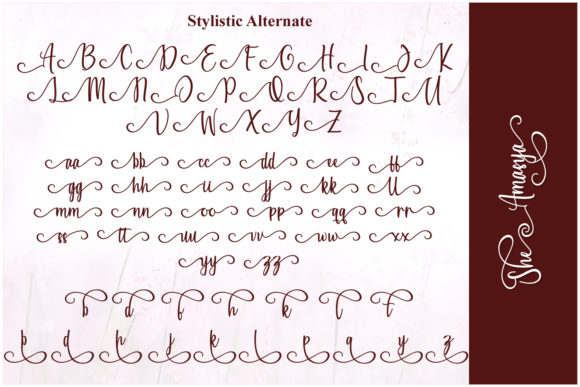 Stylistic Alternate
A B C D E F G H I J K
L M N O P Q R S T U
V W X Y Z
aa bb cc dd ee ff
gg hh ii jj kk ll
mm nn oo pp qq rr
ss tt uu vv ww xx
yy zz
b d f h k l t
b d h j k l p q y z
She Amasya